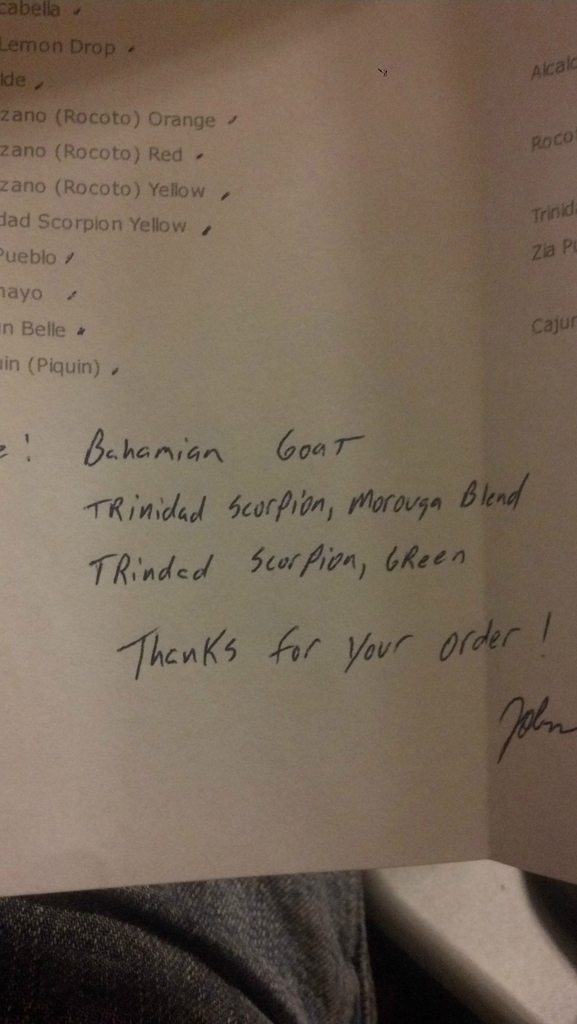 cabella
Lemon Drop
lde
zano (Rocoto) Orange
zano (Rocoto) Red
zano (Rocoto) Yellow
dad Scorpion Yellow
Pueblo
nayo
n Belle
uin (Piquin)
Alcald
Roco
Trinid
Zia Pu
Cajun
e! Bahamian Goat
TRinidad Scorpion, Morouga Blend
TRindad Scorpion, GReen
Thanks for your order!
John